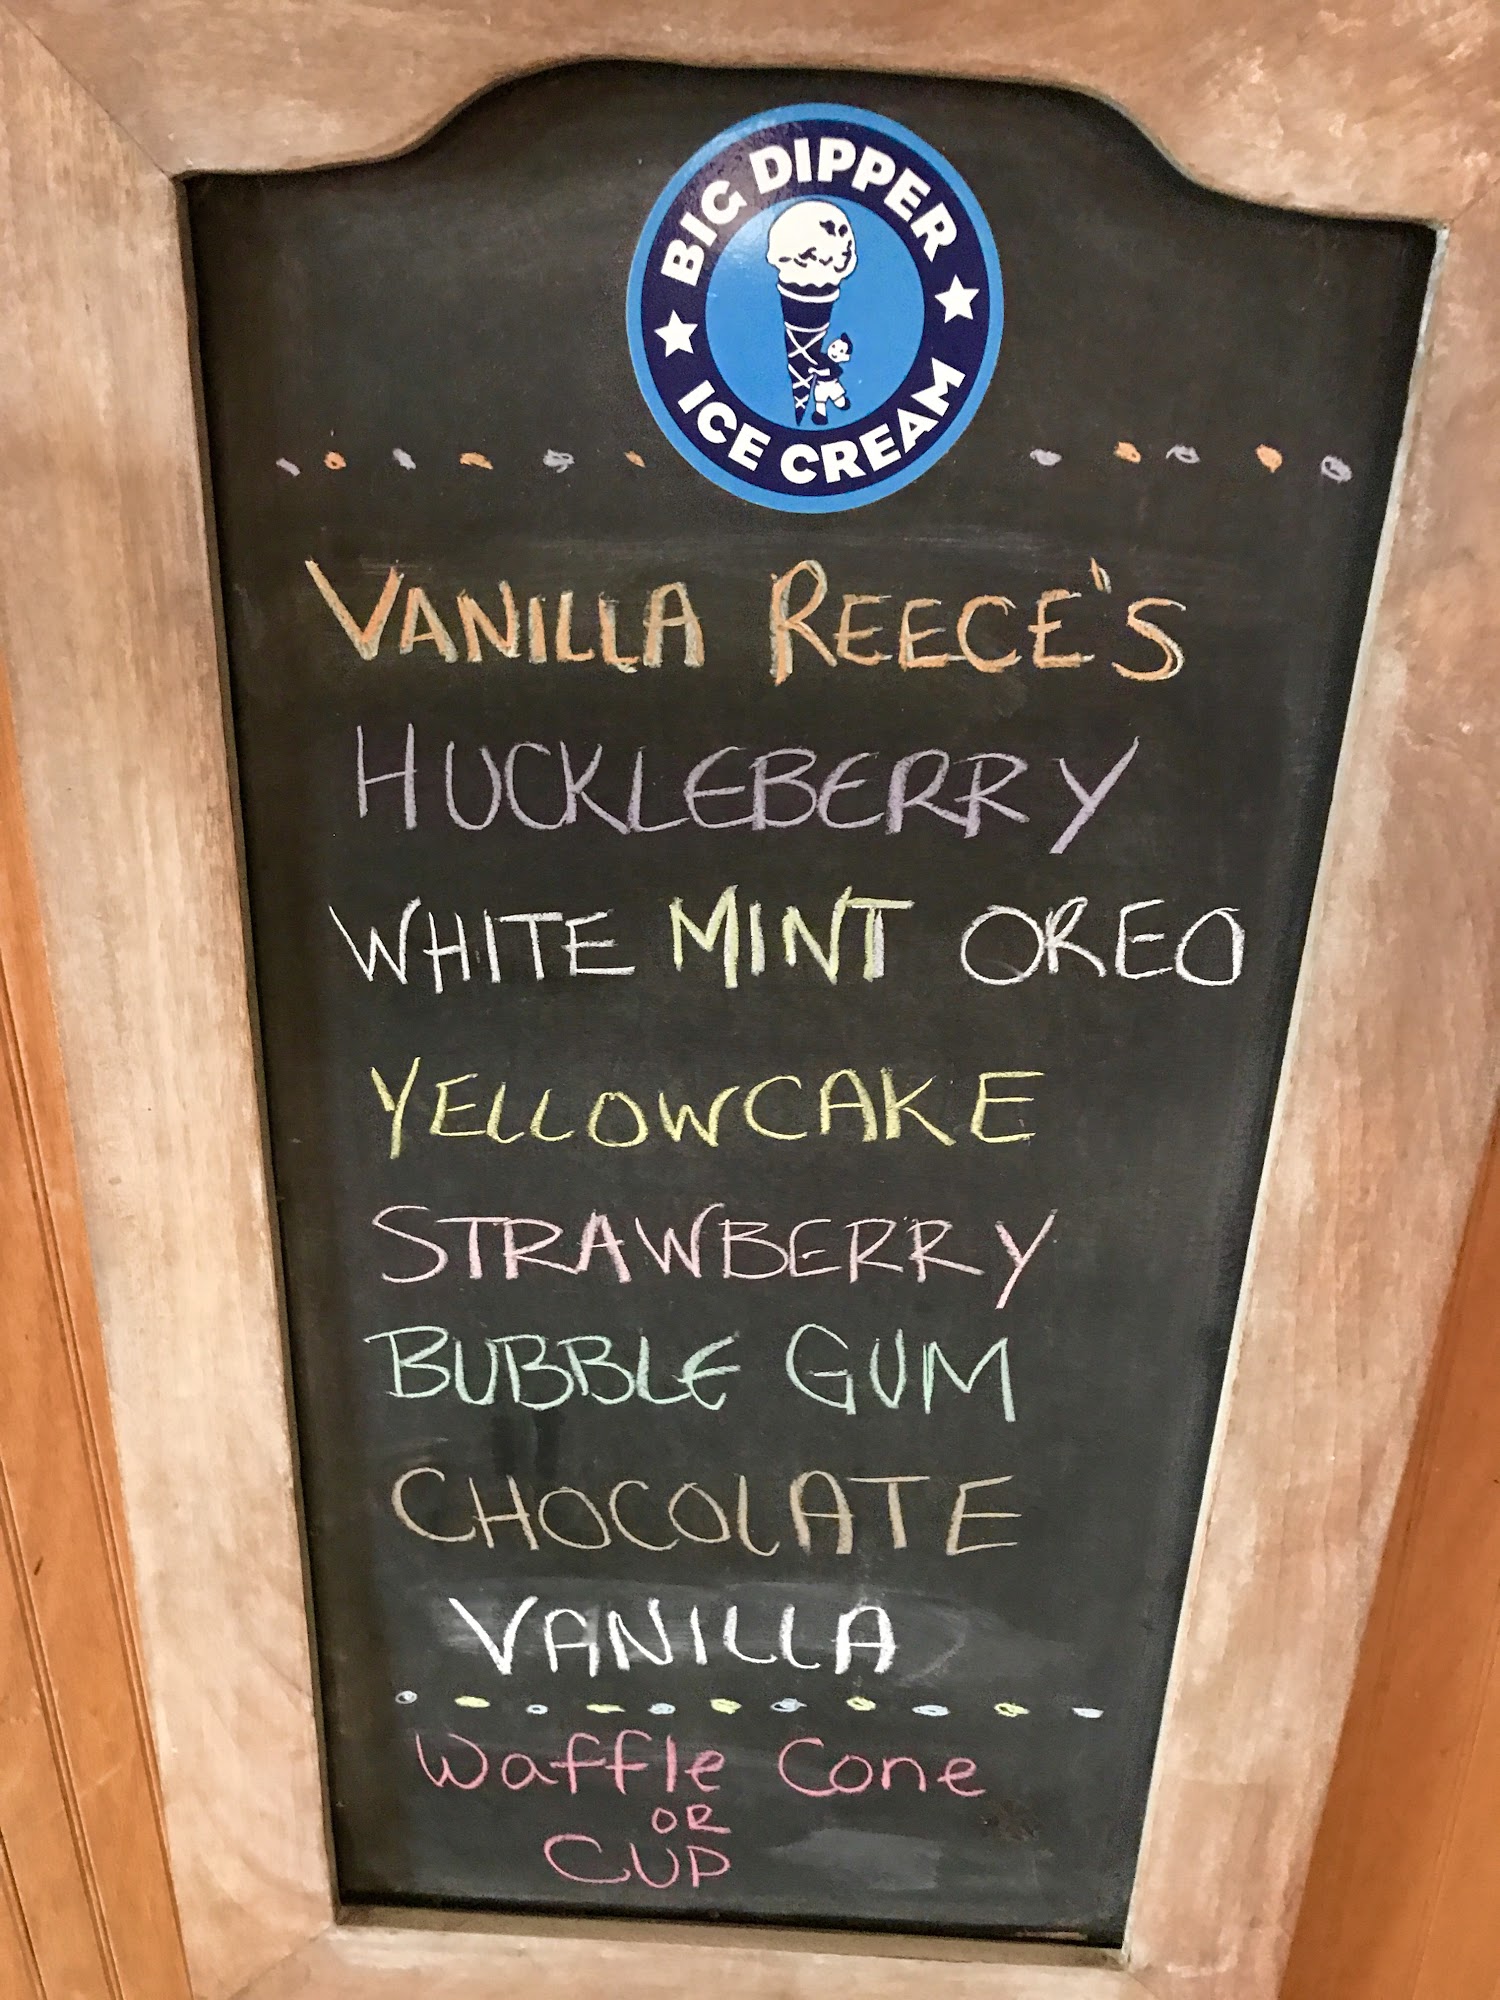 BIG DIPPER
ICE CREAM
VANILLA REECE'S
HUCKLEBERRY
WHITE MINT OREO
YELLOWCAKE
STRAWBERRY
BUBBLE GUM
CHOCOLATE
VANILLA
Waffle Cone
OR
CUP